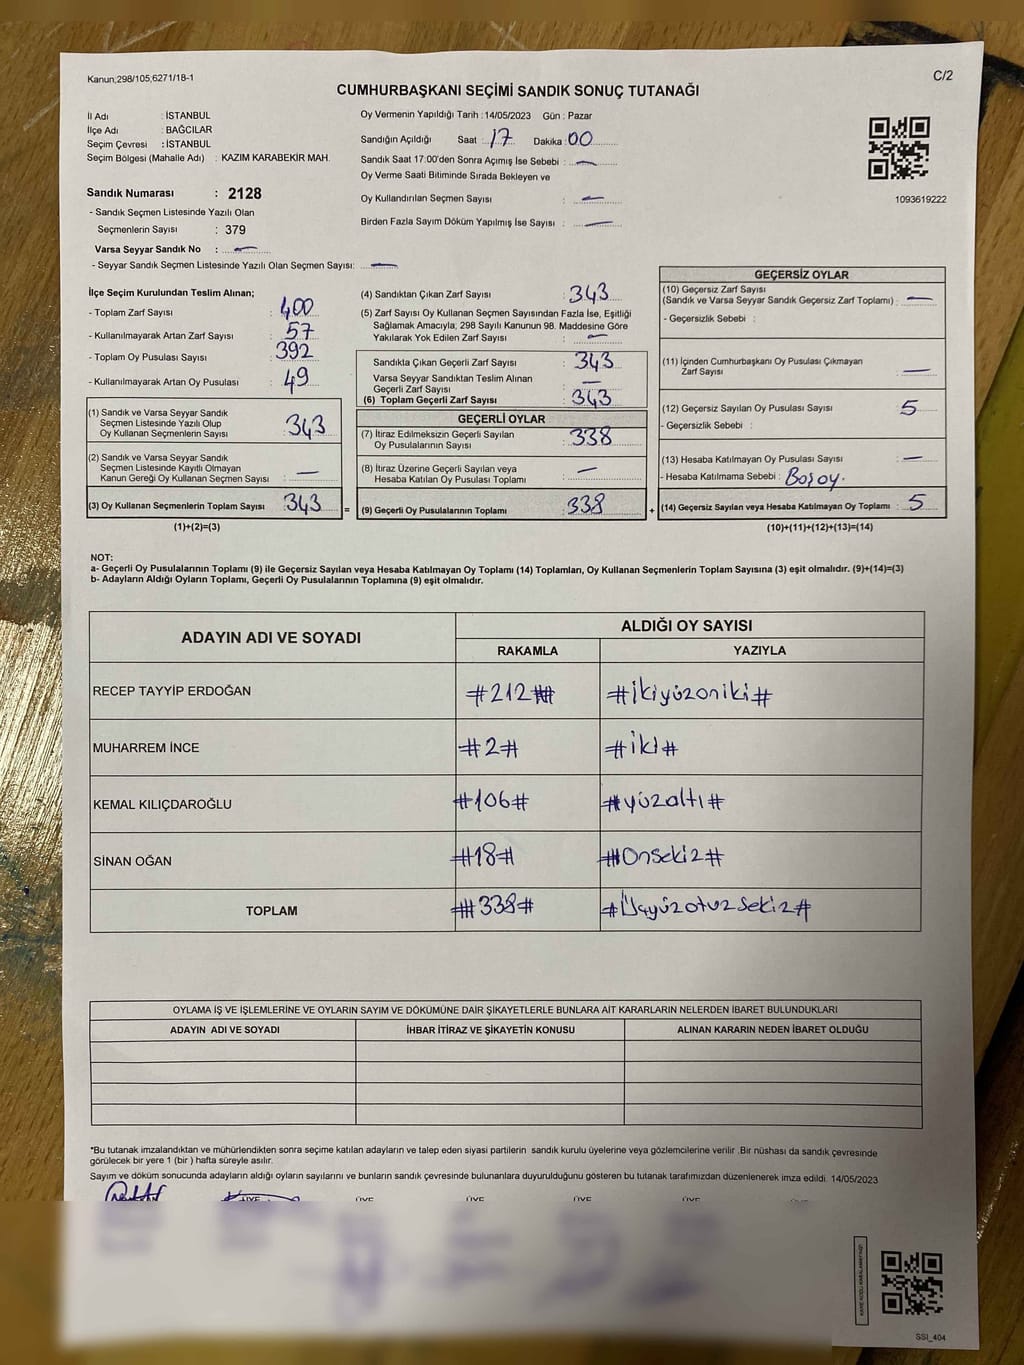 Kanun;298/105,6271/18-1
C/2
CUMHURBAŞKANI SEÇİMİ SANDIK SONUÇ TUTANAĞI
İl Adı : İSTANBUL
İlçe Adı : BAĞCILAR
Seçim Çevresi : İSTANBUL
Seçim Bölgesi (Mahalle Adı) : KAZIM KARABEKİR MAH.
Sandık Numarası : 2128
- Sandık Seçmen Listesinde Yazılı Olan
Seçmenlerin Sayısı : 379
Varsa Seyyar Sandık No : —
- Seyyar Sandık Seçmen Listesinde Yazılı Olan Seçmen Sayısı: —
Oy Vermenin Yapıldığı Tarih : 14/05/2023 Gün : Pazar
Sandığın Açıldığı Saat : 17 Dakika : 00
Sandık Saat 17:00'den Sonra Açımış İse Sebebi : —
Oy Verme Saati Bitiminde Sırada Bekleyen ve
Oy Kullandırılan Seçmen Sayısı : —
Birden Fazla Sayım Döküm Yapılmış İse Sayısı : —
1093619222
İlçe Seçim Kurulundan Teslim Alınan;
- Toplam Zarf Sayısı : 400
- Kullanılmayarak Artan Zarf Sayısı : 57
- Toplam Oy Pusulası Sayısı : 392
- Kullanılmayarak Artan Oy Pusulası : 49
(1) Sandık ve Varsa Seyyar Sandık
Seçmen Listesinde Yazılı Olup
Oy Kullanan Seçmenlerin Sayısı : 343
(2) Sandık ve Varsa Seyyar Sandık
Seçmen Listesinde Kayıtlı Olmayan
Kanun Gereği Oy Kullanan Seçmen Sayısı : —
(3) Oy Kullanan Seçmenlerin Toplam Sayısı : 343 =
(1)+(2)=(3)
(4) Sandıktan Çıkan Zarf Sayısı : 343
(5) Zarf Sayısı Oy Kullanan Seçmen Sayısından Fazla İse, Eşitliği
Sağlamak Amacıyla; 298 Sayılı Kanunun 98. Maddesine Göre
Yakılarak Yok Edilen Zarf Sayısı : —
Sandıkta Çıkan Geçerli Zarf Sayısı : 343
Varsa Seyyar Sandıktan Teslim Alınan
Geçerli Zarf Sayısı : —
(6) Toplam Geçerli Zarf Sayısı : 343
GEÇERLİ OYLAR
(7) İtiraz Edilmeksizin Geçerli Sayılan
Oy Pusulalarının Sayısı : 338
(8) İtiraz Üzerine Geçerli Sayılan veya
Hesaba Katılan Oy Pusulası Toplamı : —
(9) Geçerli Oy Pusulalarının Toplamı : 338 +
GEÇERSİZ OYLAR
(10) Geçersiz Zarf Sayısı
(Sandık ve Varsa Seyyar Sandık Geçersiz Zarf Toplamı) : —
- Geçersizlik Sebebi :
(11) İçinden Cumhurbaşkanı Oy Pusulası Çıkmayan
Zarf Sayısı : —
(12) Geçersiz Sayılan Oy Pusulası Sayısı : 5
- Geçersizlik Sebebi :
(13) Hesaba Katılmayan Oy Pusulası Sayısı : —
- Hesaba Katılmama Sebebi : Boş oy.
(14) Geçersiz Sayılan veya Hesaba Katılmayan Oy Toplamı : 5
(10)+(11)+(12)+(13)=(14)
NOT:
a- Geçerli Oy Pusulalarının Toplamı (9) ile Geçersiz Sayılan veya Hesaba Katılmayan Oy Toplamı (14) Toplamları, Oy Kullanan Seçmenlerin Toplam Sayısına (3) eşit olmalıdır. (9)+(14)=(3)
b- Adayların Aldığı Oyların Toplamı, Geçerli Oy Pusulalarının Toplamına (9) eşit olmalıdır.
ADAYIN ADI VE SOYADI
ALDIĞI OY SAYISI
RAKAMLA YAZIYLA
RECEP TAYYİP ERDOĞAN #212# #ikiyüzoniki#
MUHARREM İNCE #2# #iki#
KEMAL KILIÇDAROĞLU #106# #yüzaltı#
SİNAN OĞAN #18# #Onsekiz#
TOPLAM #338# #Üçyüzotuzsekiz#
OYLAMA İŞ VE İŞLEMLERİNE VE OYLARIN SAYIM VE DÖKÜMÜNE DAİR ŞİKAYETLERLE BUNLARA AİT KARARLARIN NELERDEN İBARET BULUNDUKLARI
ADAYIN ADI VE SOYADI İHBAR İTİRAZ VE ŞİKAYETİN KONUSU ALINAN KARARIN NEDEN İBARET OLDUĞU
*Bu tutanak imzalandıktan ve mühürlendikten sonra seçime katılan adayların ve talep eden siyasi partilerin sandık kurulu üyelerine veya gözlemcilerine verilir .Bir nüshası da sandık çevresinde
görülecek bir yere 1 (bir ) hafta süreyle asılır.
Sayım ve döküm sonucunda adayların aldığı oyların sayılarını ve bunların sandık çevresinde bulunanlara duyurulduğunu gösteren bu tutanak tarafımızdan düzenlenerek imza edildi. 14/05/2023
ÜYE ÜYE ÜYE ÜYE ÜYE
SSI_404